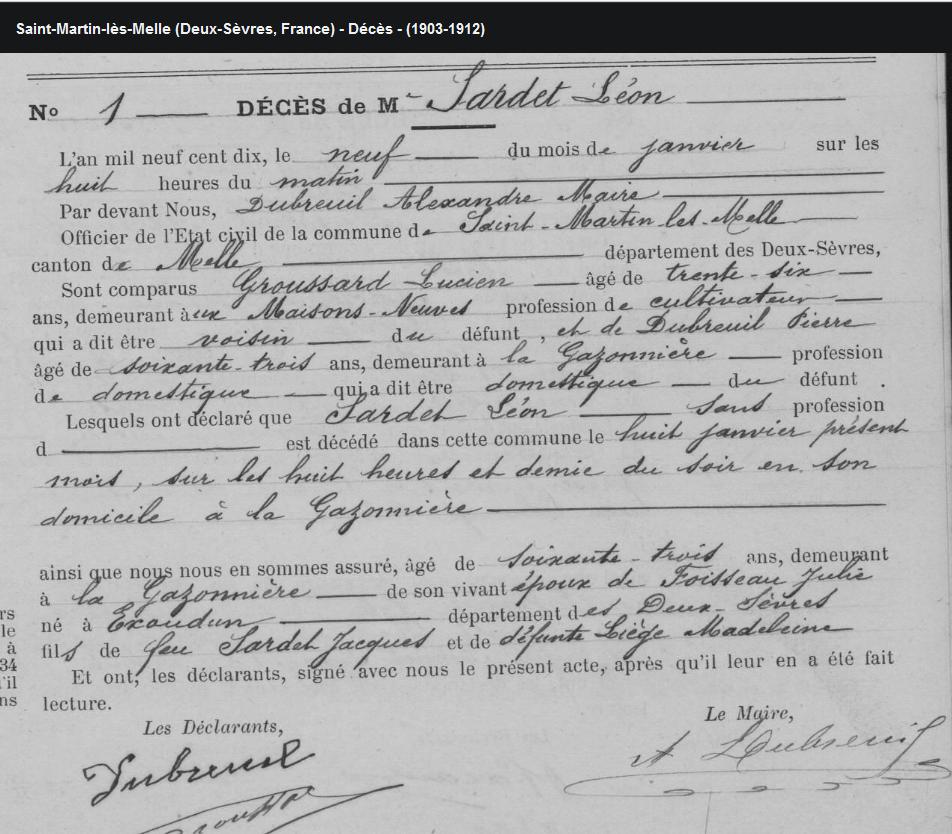 Saint-Martin-lès-Melle (Deux-Sèvres, France) - Décès - (1903-1912)
No 1 DÉCÈS de M Sardet Léon
L'an mil neuf cent dix, le neuf du mois de janvier sur les
huit heures du matin
Par devant Nous, Dubreuil Alexandre Maire
Officier de l'Etat civil de la commune de Saint-Martin-les-Melle
canton de Melle département des Deux-Sèvres,
Sont comparus Groussard Lucien âgé de trente-six
ans, demeurant àux Maisons-Neuves profession de cultivateur
qui a dit être voisin du défunt, et de Dubreuil Pierre
âgé de soixante-trois ans, demeurant à la Gazonnière profession
de domestique qui a dit être domestique du défunt .
Lesquels ont déclaré que Sardet Léon sans profession
d est décédé dans cette commune le huit janvier présent
mois, sur les huit heures et demie du soir en son
domicile à la Gazonnière
ainsi que nous nous en sommes assuré, âgé de soixante-trois ans, demeurant
à la Gazonnière de son vivant époux de Foisseau Julie
né à Exoudun département des Deux-Sèvres
fils de feu Sardet Jacques et de défunte Liège Madeleine
Et ont, les déclarants, signé avec nous le présent acte, après qu'il leur en a été fait
lecture.
rs
le
à
34
'il
ns
Les Déclarants,
Le Maire,
Dubreuil
A Dubreuil